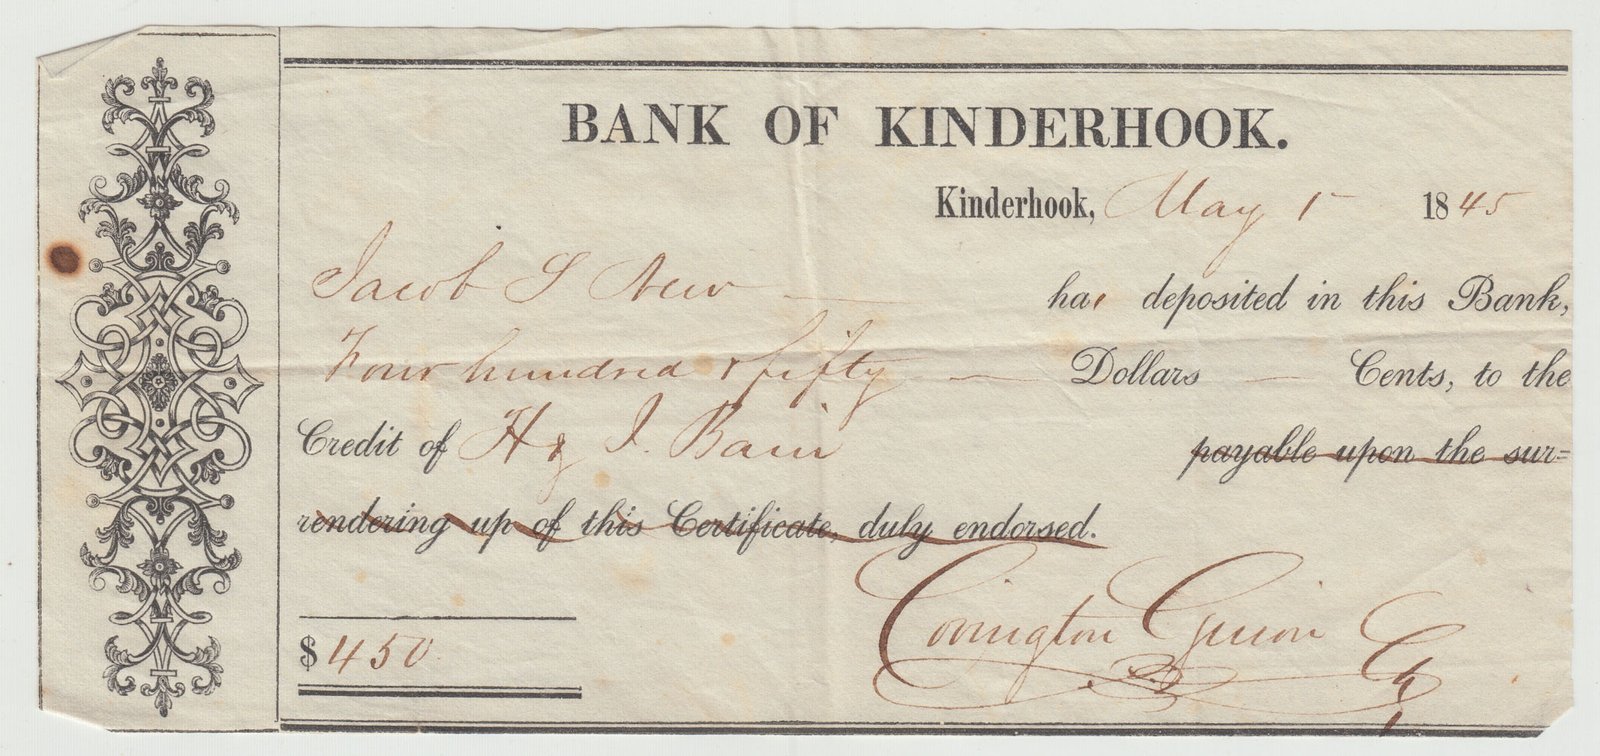 BANK OF KINDERHOOK.
Kinderhook, May 1 1845
Jacob S New has deposited in this Bank,
Four hundred & fifty Dollars Cents, to the
Credit of H & I. Bain payable upon the sur=
rendering up of this Certificate, duly endorsed.
Covington Guion
$ 450